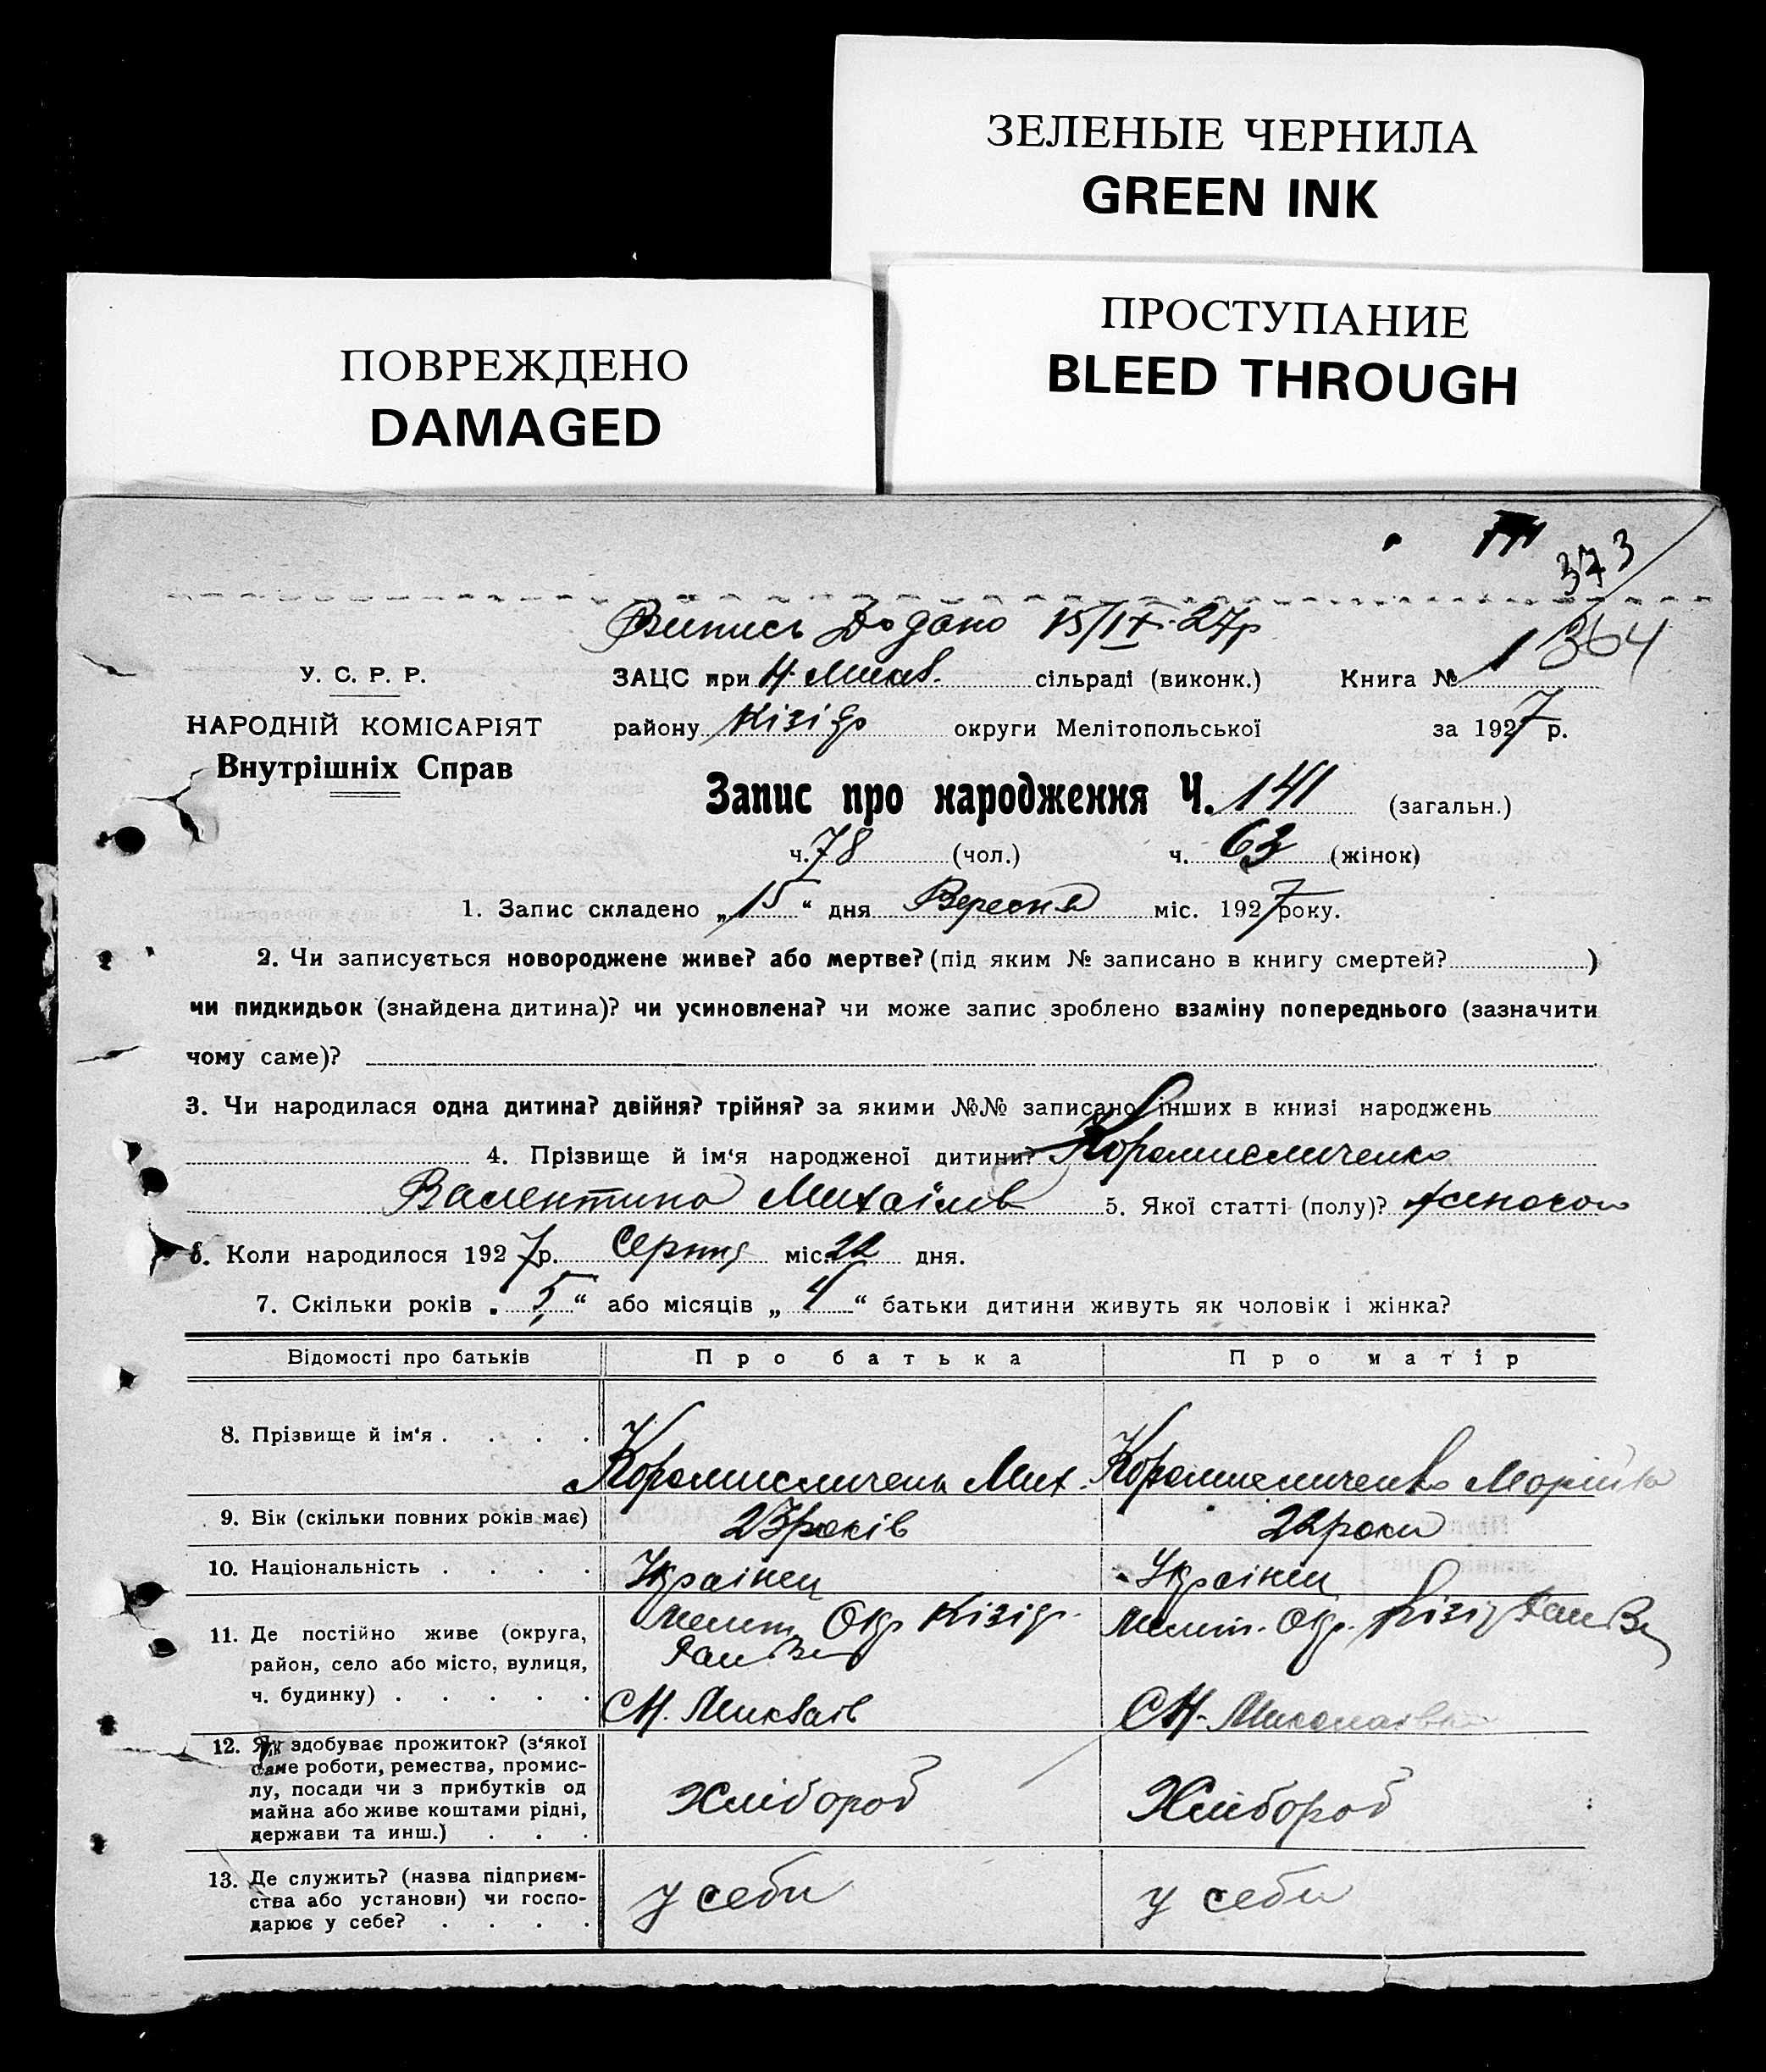 ЗЕЛЕНЫЕ ЧЕРНИЛА
GREEN INK
ПРОСТУПАНИЕ
BLEED THROUGH
ПОВРЕЖДЕНО
DAMAGED
373
Випись Додано 15/IX-27р
364
У. С. Р. Р.
ЗАЦС при Н. Микв. сільраді (виконк.) Книга № 1
НАРОДНІЙ КОМІСАРІЯТ
району Кізіяр округи Мелітопольської за 1927 р.
Внутрішніх Справ
Запис про народження Ч. 141 (загальн.)
ч. 78 (чол.) ч. 63 (жінок)
1. Запис складено „15“ дня Вересня міс. 1927 року.
2. Чи записується новороджене живе? або мертве? (під яким № записано в книгу смертей? )
чи пидкидьок (знайдена дитина)? чи усиновлена? чи може запис зроблено взаміну попереднього (зазначити
чому саме)?
3. Чи народилася одна дитина? двійня? трійня? за якими №№ записано інших в книзі народжень
4. Прізвище й ім‘я народженої дитини? Коромисличенко
Валентина Михаілів 5. Якої статті (полу)? жіночои
6. Коли народилося 1927 р. Серпня міс. 22 дня.
7. Скільки років „5“ або місяців „4“ батьки дитини живуть як чоловік і жінка?
Відомості про батьків Про батька Про матір
8. Прізвище й ім‘я . . . . Коромисличенк Мих. Коромисличенко Марійка
9. Вік (скільки повних років має) 23 років 22 роки
10. Національність . . . . Українец Українец
11. Де постійно живе (округа, Мелит. Окр Кізіяр. Мелит. Окр. Кізіяр
район, село або місто, вулиця,
ч. будинку) . . . . . С Н. Микваів С Н. Миколаівка
12. Як здобуває прожиток? (з‘якої
саме роботи, ремества, промис-
лу, посади чи з прибутків од Хлібороб Хлібороб
майна або живе коштами рідні,
держави та инш.) . . .
13. Де служить? (назва підприєм-
ства або установи) чи госпо- у себи у себи
дарює у себе? . . . .